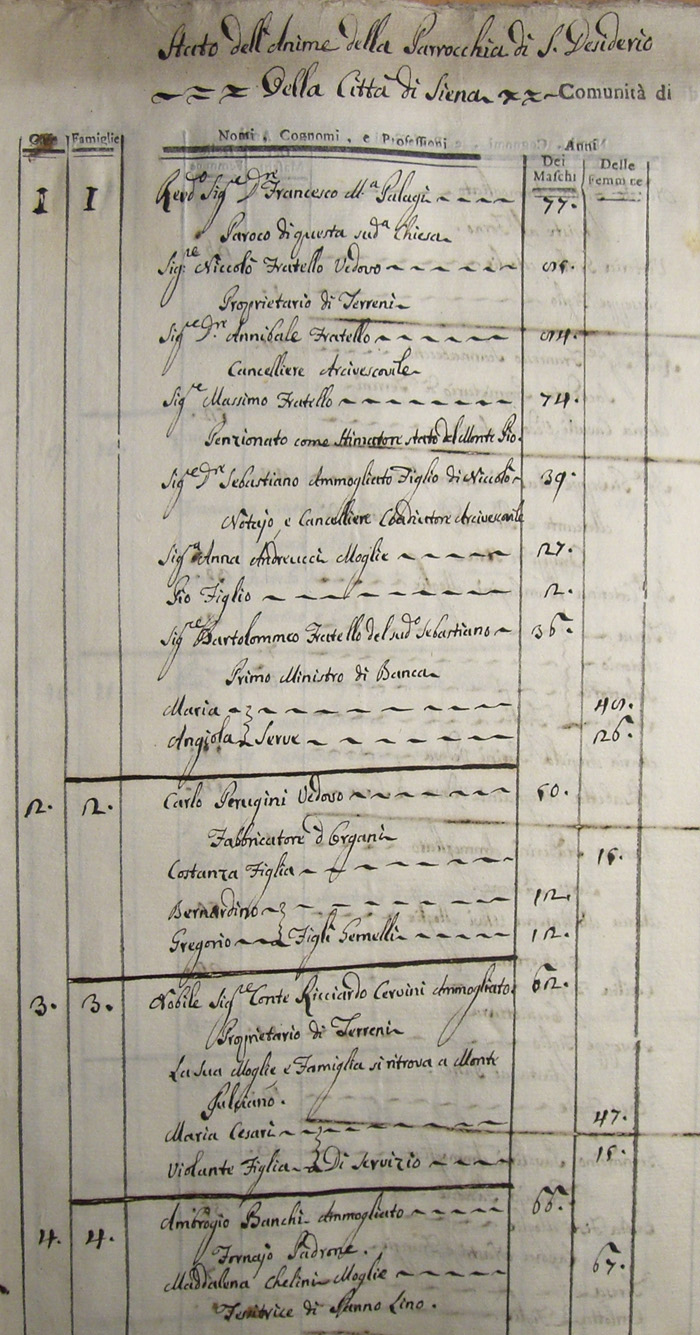 Stato dell'Anime della Parrocchia di S. Desiderio
Della Città di Siena Comunità di
Case Famiglie Nomi, Cognomi, e Professioni Anni
Dei Maschi Delle Femmine
1 1 Revdo Sigre Dre Francesco Ma Palagi 77.
Paroco di questa sudª Chiesa
Sigre Niccolò Fratello Vedovo
Proprietario di Terreni
Sigre Dre Annibale Fratello
Cancelliere Arcivescovile
Sigre Massimo Fratello 74.
Penzionato come Stimatore stato del Monte Pio.
Sigre Dre Sebastiano Ammogliato Figlio di Niccolò 39.
Notajo, e Cancelliere Coadiutore Arcivescovile
Sigra Anna Andreucci Moglie 27.
Pio Figlio 2.
Sigre Bartolommeo Fratello del sudo Sebastiano 36.
Primo Ministro di Banca
Maria
Angiola Serve 26.
2. 2. Carlo Perugini Vedovo 50.
Fabbricatore d'Organi
Costanza Figlia 15.
Bernardino 12.
Gregorio Figli Gemelli 12.
3. 3. Nobile Sigre Conte Ricciardo Cervini Ammogliato. 62.
Proprietario di Terreni
La sua Moglie e Famiglia si ritrova a Monte
Pulciano.
Maria Cesari 47.
Violante Figlia Di Servizio 15.
4. 4. Ambrogio Banchi Ammogliato 66.
Fornajo Padrone.
Maddalena Chelini Moglie 67.
Tessitrice di Panno Lino.